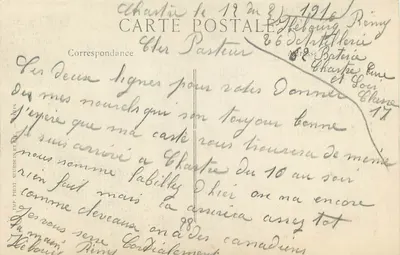 Chartre le 12 du 2 1916
CARTE POSTALE
Hebourg Rémy
26 dartillerie
Correspondance
62 Baterie
Cher Pasteur
Chartre Eure
et Loir
17
Ces deux lignes pour vous Donner
de mes nouvels qui son toujour bonne
j'espere que ma carte vous trouvera de meme
je suis arrivé a Chartre du 10 au soir
nous somme habilly D hier on ma encore
rien fait mais ca arrivera assez tot
comme cheveaux on a des canadiens
Je vous serre Cordialement
la main
Rémy